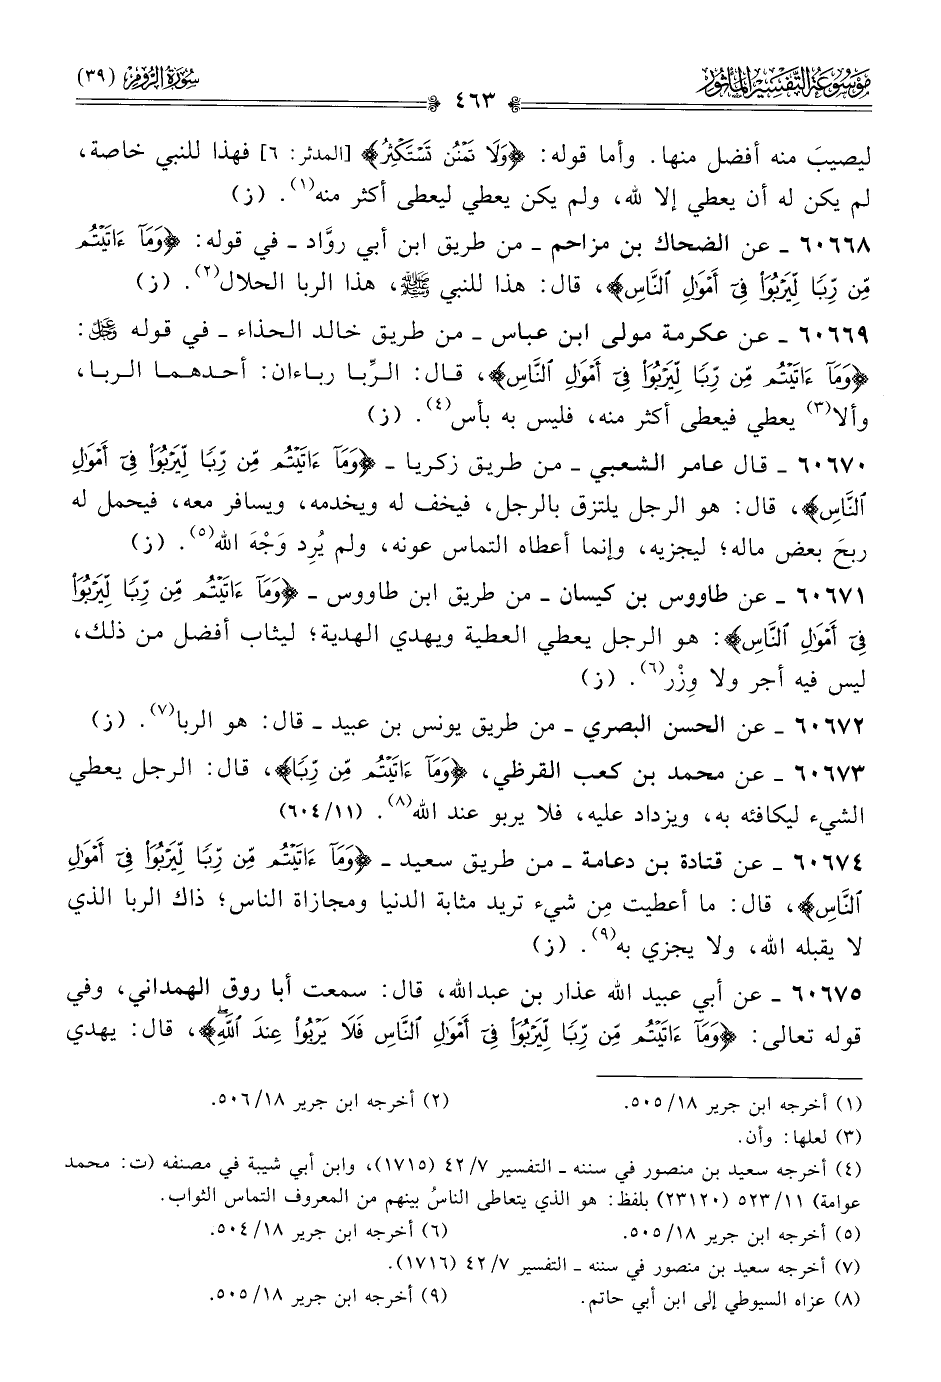 مَوْسُوعَةُ التَّفْسِيرِ المَأْثُورِ
٤٦٣
سُورَةُ الرُّومِ (٣٩)
ليصيبَ منه أفضل منها. وأما قوله: ﴿وَلَا تَمْنُن تَسْتَكْثِرُ﴾ [المدثر: ٦] فهذا للنبي خاصة،
لم يكن له أن يعطي إلا لله، ولم يكن يعطي ليعطى أكثر منه(١). (ز)
٦٠٦٦٨ ـ عن الضحاك بن مزاحم ـ من طريق ابن أبي روَّاد ـ في قوله: ﴿وَمَآ ءَاتَيْتُم
مِّن رِّبًا لِّيَرْبُوَا۟ فِىٓ أَمْوَٰلِ ٱلنَّاسِ﴾، قال: هذا للنبي ﷺ، هذا الربا الحلال(٢). (ز)
٦٠٦٦٩ ـ عن عكرمة مولى ابن عباس ـ من طريق خالد الحذاء ـ في قوله ﷿:
﴿وَمَآ ءَاتَيْتُم مِّن رِّبًا لِّيَرْبُوَا۟ فِىٓ أَمْوَٰلِ ٱلنَّاسِ﴾، قال: الرِّبا رباءان: أحدهما الربا،
وألا(٣) يعطي فيعطى أكثر منه، فليس به بأس(٤). (ز)
٦٠٦٧٠ ـ قال عامر الشعبي ـ من طريق زكريا ـ ﴿وَمَآ ءَاتَيْتُم مِّن رِّبًا لِّيَرْبُوَا۟ فِىٓ أَمْوَٰلِ
ٱلنَّاسِ﴾، قال: هو الرجل يلتزق بالرجل، فيخف له ويخدمه، ويسافر معه، فيحمل له
ربحَ بعض ماله؛ ليجزيه، وإنما أعطاه التماس عونه، ولم يُرِد وَجْهَ الله(٥). (ز)
٦٠٦٧١ ـ عن طاووس بن كيسان ـ من طريق ابن طاووس ـ ﴿وَمَآ ءَاتَيْتُم مِّن رِّبًا لِّيَرْبُوَا۟
فِىٓ أَمْوَٰلِ ٱلنَّاسِ﴾: هو الرجل يعطي العطية ويهدي الهدية؛ ليثاب أفضل من ذلك،
ليس فيه أجر ولا وِزْر(٦). (ز)
٦٠٦٧٢ ـ عن الحسن البصري ـ من طريق يونس بن عبيد ـ قال: هو الربا(٧). (ز)
٦٠٦٧٣ ـ عن محمد بن كعب القرظي، ﴿وَمَآ ءَاتَيْتُم مِّن رِّبًا﴾، قال: الرجل يعطي
الشيء ليكافئه به، ويزداد عليه، فلا يربو عند الله(٨). (٦٠٤/١١)
٦٠٦٧٤ ـ عن قتادة بن دعامة ـ من طريق سعيد ـ ﴿وَمَآ ءَاتَيْتُم مِّن رِّبًا لِّيَرْبُوَا۟ فِىٓ أَمْوَٰلِ
ٱلنَّاسِ﴾، قال: ما أعطيت مِن شيء تريد مثابة الدنيا ومجازاة الناس؛ ذاك الربا الذي
لا يقبله الله، ولا يجزي به(٩). (ز)
٦٠٦٧٥ ـ عن أبي عبيد الله عذار بن عبدالله، قال: سمعت أبا روق الهمداني، وفي
قوله تعالى: ﴿وَمَآ ءَاتَيْتُم مِّن رِّبًا لِّيَرْبُوَا۟ فِىٓ أَمْوَٰلِ ٱلنَّاسِ فَلَا يَرْبُوا۟ عِندَ ٱللَّهِ﴾، قال: يهدي
(١) أخرجه ابن جرير ٥٠٥/١٨. (٢) أخرجه ابن جرير ٥٠٦/١٨.
(٣) لعلها: وأن.
(٤) أخرجه سعيد بن منصور في سننه ـ التفسير ٤٢/٧ (١٧١٥)، وابن أبي شيبة في مصنفه (ت: محمد
عوامة) ٥٢٣/١١ (٢٣١٢٠) بلفظ: هو الذي يتعاطى الناسُ بينهم من المعروف التماس الثواب.
(٥) أخرجه ابن جرير ٥٠٥/١٨. (٦) أخرجه ابن جرير ٥٠٤/١٨.
(٧) أخرجه سعيد بن منصور في سننه ـ التفسير ٤٢/٧ (١٧١٦).
(٨) عزاه السيوطي إلى ابن أبي حاتم. (٩) أخرجه ابن جرير ٥٠٥/١٨.